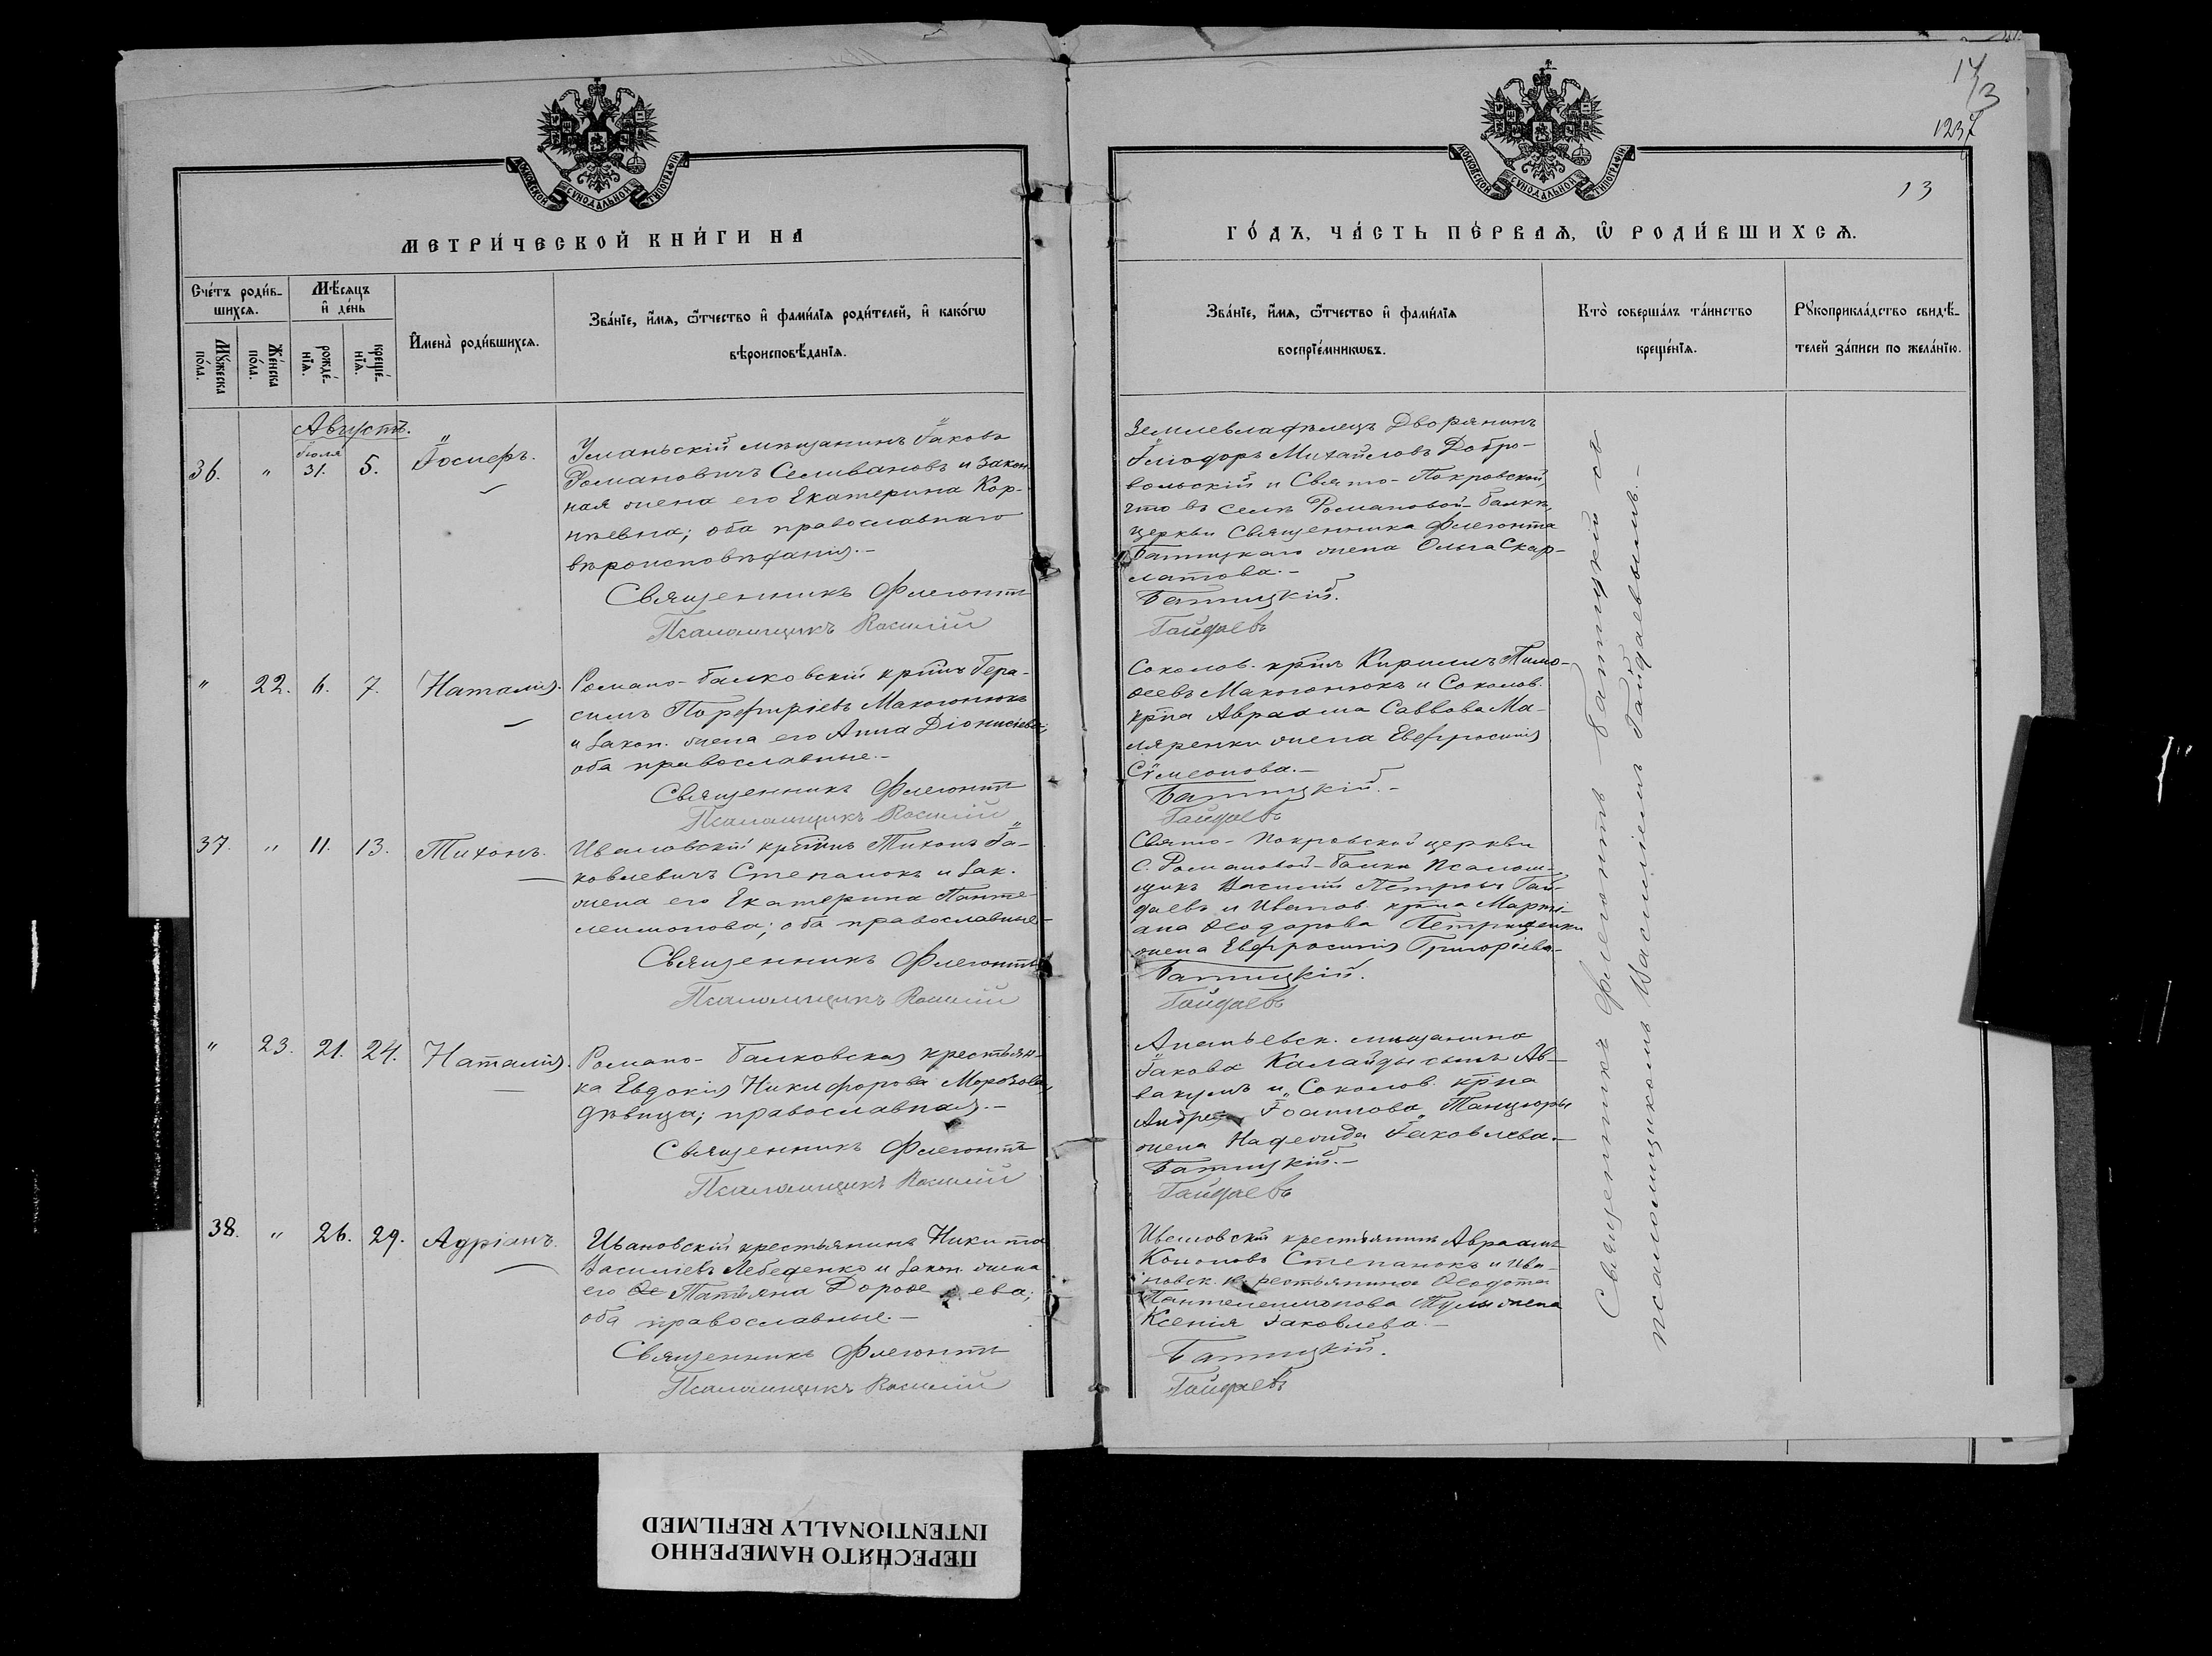 МОСКОВСКОЙ СѴНОДАЛЬНОЙ ТИПОГРАФІИ
МЕТРИ́ЧЕСКОЙ КНИ́ГИ НА
Сче́тъ роди́в-
шихсѧ.
Мѣ́сѧцъ
и҆ де́нь
И҆мена̀ роди́вшихсѧ.
Зва́нїе, и҆́мѧ, ѻ҆́тчество и҆ фами́лїѧ роди́телей, и҆ како́гѡ
вѣроисповѣ́данїѧ.
Мꙋ́жеска
по́ла.
Же́нска
по́ла.
рожде́-
нїѧ.
креще́-
нїѧ.
Августъ.
36.
"
Іюля
31.
5.
Іосифъ.
Уманьскій мѣщанинъ Іаковъ
Романовичъ Селивановъ и закон-
ная жена его Екатерина Кор-
нѣевна; оба православнаго
вѣроисповѣданія.-
Священникъ Флегонтъ
Псаломщикъ Василій
"
22.
6.
7.
Наталія.
Романо-Балковскій кр̃нъ Гера-
симъ Порфиріевъ Макогонюкъ
и закон. жена его Анна Діонисіева;
оба православные.-
Священникъ Флегонтъ
Псаломщикъ Василій
37.
"
11.
13.
Тихонъ.
Ивановскій кр̃нъ Тихонъ Іа-
ковлевичъ Степанокъ и зак.
жена его Екатерина Панте-
леимонова; оба православные-
Священникъ Флегонтъ
Псаломщикъ Василій
"
23.
21.
24.
Наталія.
Романо-Балковская крестьян-
ка Евдокія Никифорова Морозова,
дѣвица; православная.-
Священникъ Флегонтъ
Псаломщикъ Василій
38.
"
26.
29.
Адріанъ.
Ивановскій крестьянинъ Никита
Василіевъ Лебеденко и закон. жена
его Татьяна Дорофеева;
оба православные.-
Священникъ Флегонтъ
Псаломщикъ Василій
1237
13
МОСКОВСКОЙ СѴНОДАЛЬНОЙ ТИПОГРАФІИ
ГО́ДЪ, ЧА́СТЬ ПЕ́РВАѦ, Ѽ РОДИ́ВШИХСѦ.
Зва́нїе, и҆́мѧ, ѻ҆́тчество и҆ фами́лїѧ
воспрїе́мникѡвъ.
Кто̀ соверша́лъ та́инство
креще́нїѧ.
Рꙋкоприкла́дство свидѣ́-
телей за́писи по жела́нїю.
Землевладѣлецъ Дворянинъ
Иліодоръ Михайловъ Добро-
вольскій и Свято-Покровской,
что въ селѣ Романовой-Балкѣ,
церкви Священника Флегонта
Батицкаго жена Ольга Скар-
латова.-
Батицкій.
Гайдаевъ
Соколов. кр̃нъ Кириллъ Тимо-
ѳеевъ Макогонюкъ и Соколов.
кр̃на Авраама Саввова Ма-
ляренки жена Евфросинія
Сѵмеонова.-
Батицкій.-
Гайдаевъ
Свято-Покровской церкви
с. Романовой-Балки Псалом-
щикъ Василій Петровъ Гай-
даевъ и Иванов. кр̃на Марті-
ана Ѳеодорова Петрищенки
жена Евфросинія Григоріева-
Батицкій.
Гайдаевъ
Ананьевск. мѣщанина
Іакова Калайды сынъ Ав-
вакумъ и Соколов. кр̃на
Андрея Іоаннова Танцюры
жена Надежда Іаковлева.-
Батицкій.-
Гайдаевъ
Ивановскій крестьянинъ Авраамъ
Кононовъ Степанокъ и Ива-
новск. крестьянина Ѳеодота
Пантелеимонова жена
Ксенія Іаковлева.-
Батицкій.
Гайдаевъ
Священникъ Флегонтъ Батицкій съ
псаломщикомъ Василіемъ Гайдаевымъ.-
ПЕРЕСНЯТО НАМЕРЕННО
INTENTIONALLY REFILMED